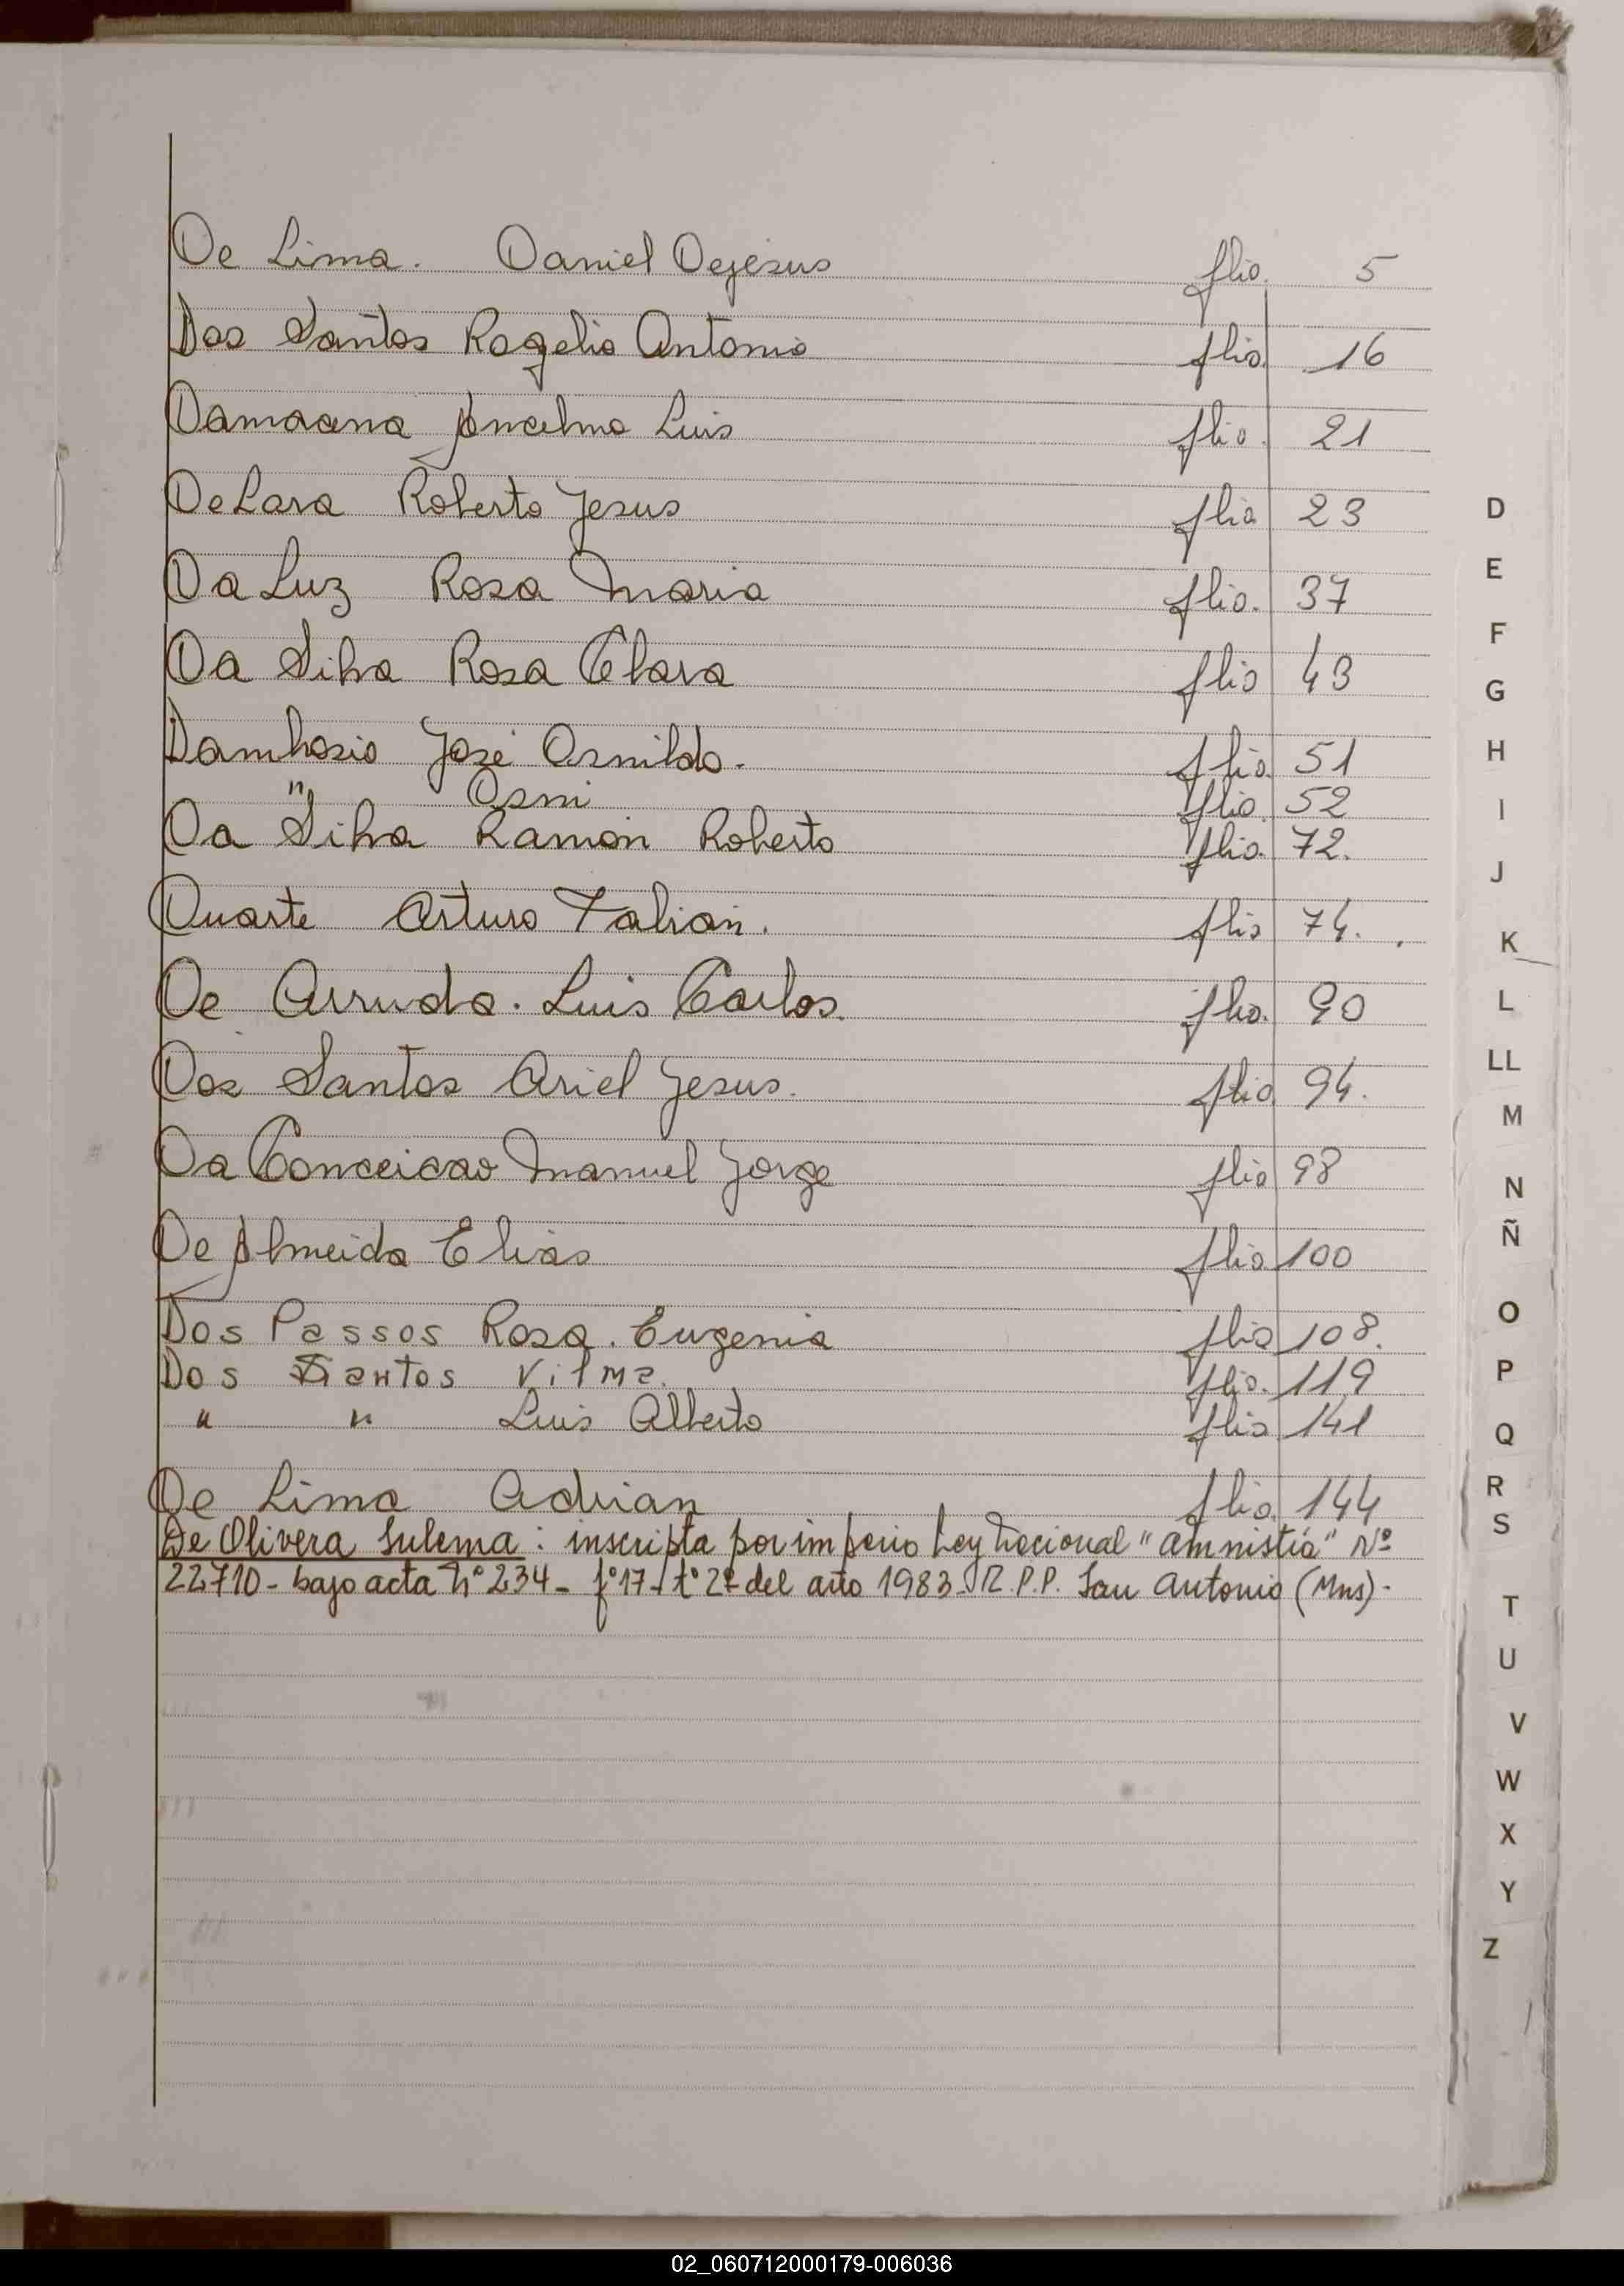 De Lima. Daniel Dejesus flio. 5
Dos Santos Rogelio Antonio flio. 16
Damacena Ancelmo Luis flio. 21
De Lara Roberto Jesus flio 23
Da Luz Rosa Maria flio. 37
Da Silva Rosa Clara flio 43
Damhosio José Osnildo. flio. 51
" Osni flio. 52
Da Silva Ramón Roberto flio. 72.
Duarte Arturo Fabian. flio 74.
De Arruda. Luis Carlos. flio. 90
Dos Santos Ariel Jesus. flio 94.
Da Conceicao Manuel Jorge flio 98
De Almeida Elias flio 100
Dos Passos Rosa. Eugenia flio 108.
Dos Santos Vilma. flio. 119
" " Luis Alberto flio 141
De Lima Adrian flio. 144
De Olivera Sulema: inscripta por imperio Ley Nacional "amnistía" Nº
22710- bajo acta Nº 234- fº17- tº 2º del año 1983- R.P.P. San Antonio (Mns)-
D
E
F
G
H
I
J
K
L
LL
M
N
Ñ
O
P
Q
R
S
T
U
V
W
X
Y
Z
02_060712000179-006036